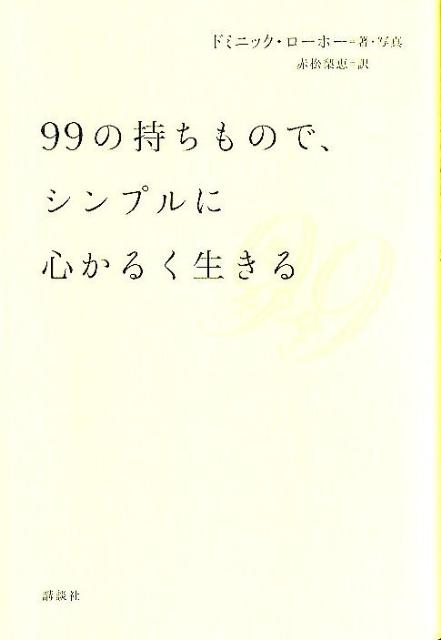 ドミニック・ローホー=著・写真
赤松梨恵=訳
99の持ちもので、
シンプルに
心かるく生きる
99
講談社